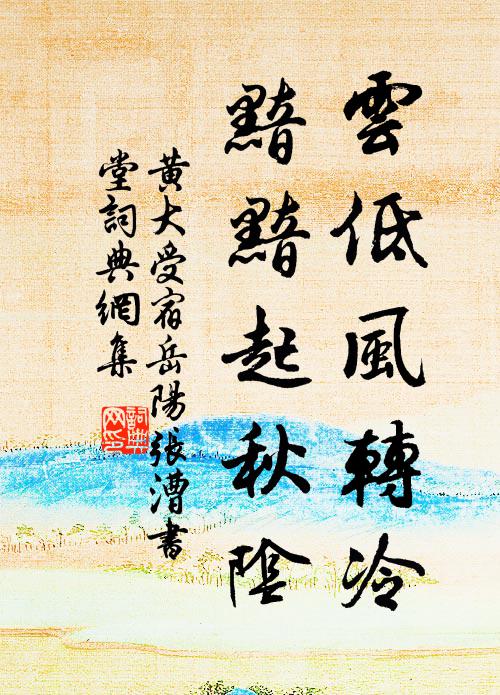 雲低風轉冷
黯黯起秋陰
黃大受宿岳陽張漕書
堂詞典網集
詞典
网印